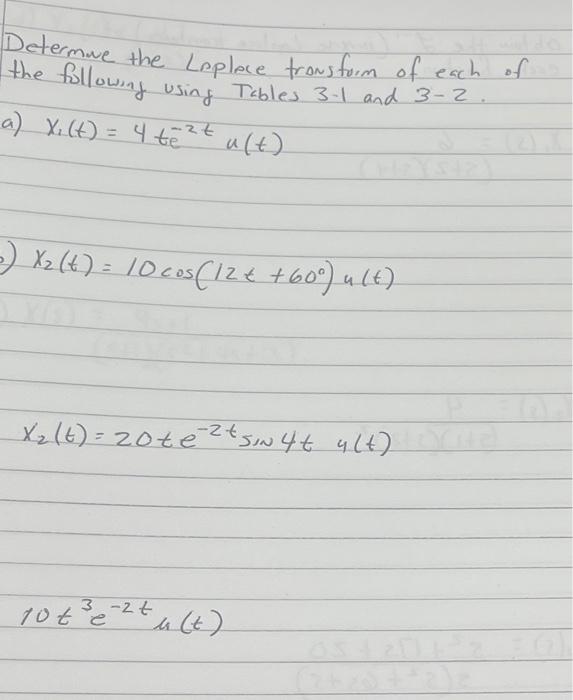 Determine the Laplace transform of each of
the following using Tables 3-1 and 3-2.
a) x₁(t) = 4 te⁻²ᵗ u(t)
) x₂(t) = 10 cos(12t +60°) u(t)
x₂(t) = 20te⁻²ᵗ sin 4t u(t)
10t³e⁻²ᵗ u(t)